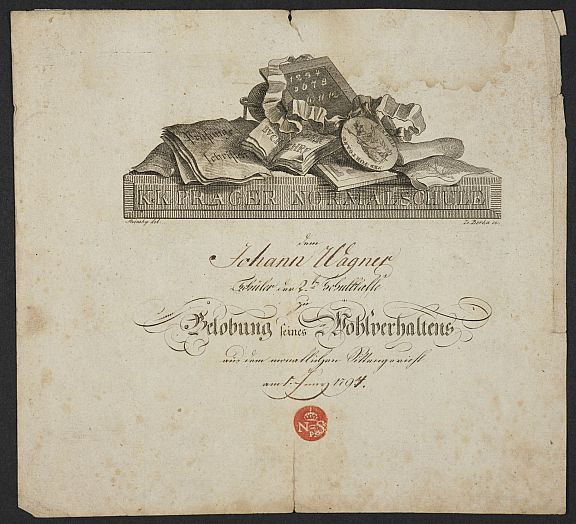 1234
5678
K K PRAGER NORMALSCHULE
del.
Berka sc.
dem
Johann Wagner
Schüler der 2.ten Schulklasse
zu
Belobung seines Wohlverhaltens
aus dem monatlichen Sittengericht
am 1. 1794.
N S
P